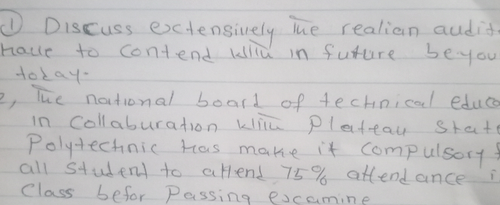 ① Discuss extensively the realian audit
Have to contend with in future beyou
today-
2, The national board of technical educa
in collaburation with Plateau Stat
Polytechnic Has make it compulsory f
all Student to attend 75% attendance i
Class befor Passing examine